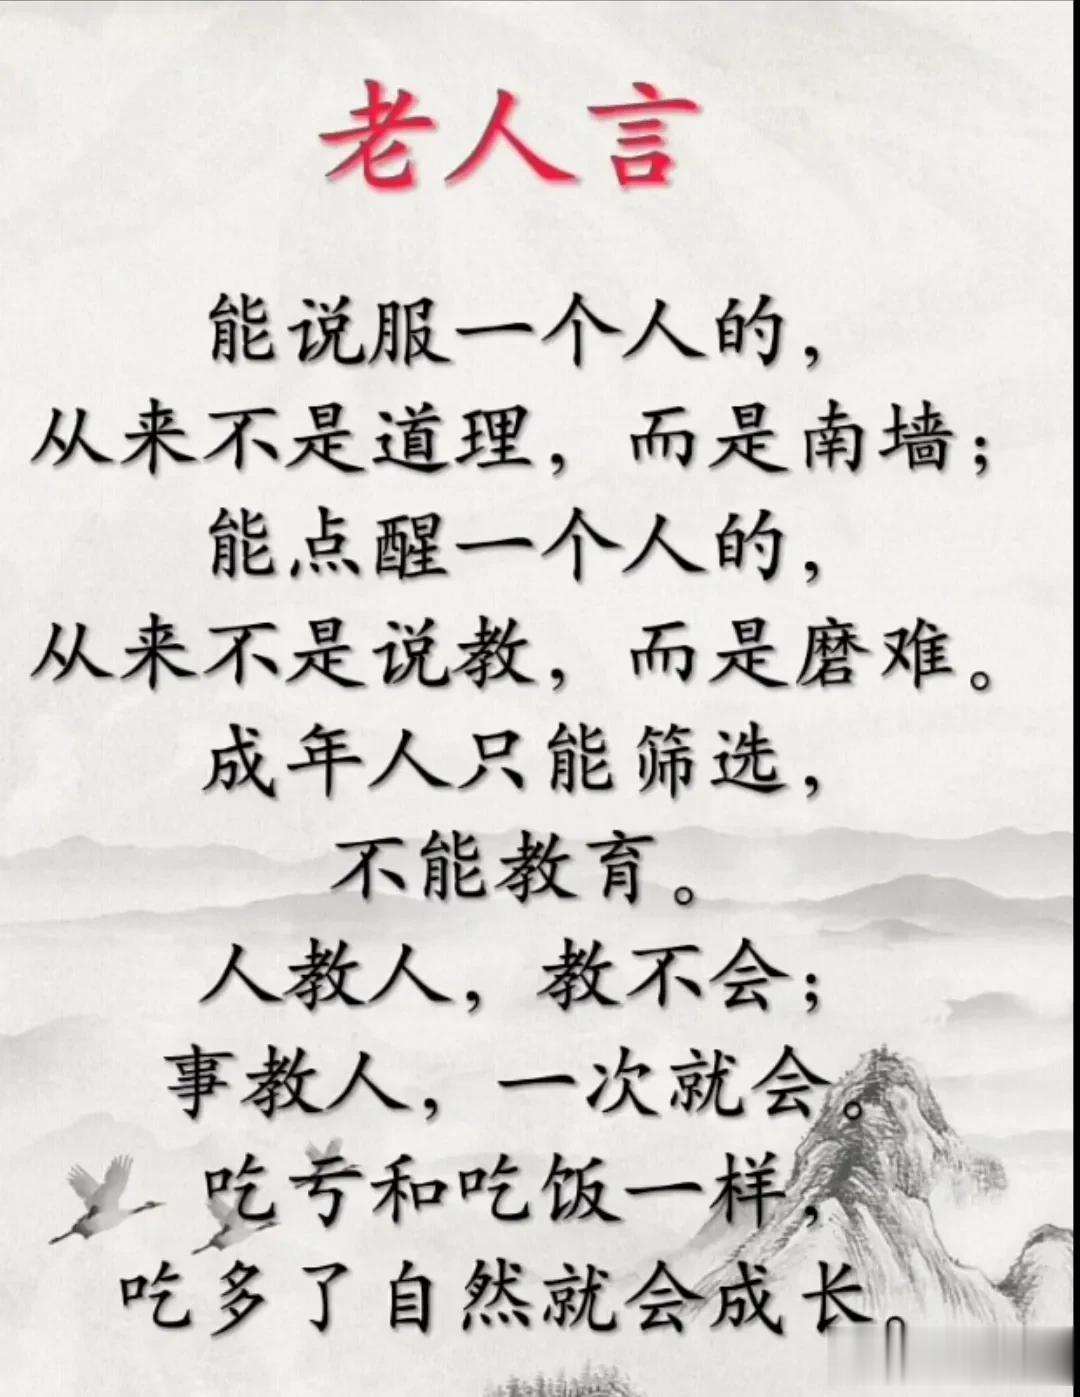 老人言
能说服一个人的，
从来不是道理，而是南墙；
能点醒一个人的，
从来不是说教，而是磨难。
成年人只能筛选，
不能教育。
人教人，教不会；
事教人，一次就会。
吃亏和吃饭一样，
吃多了自然就会成长。